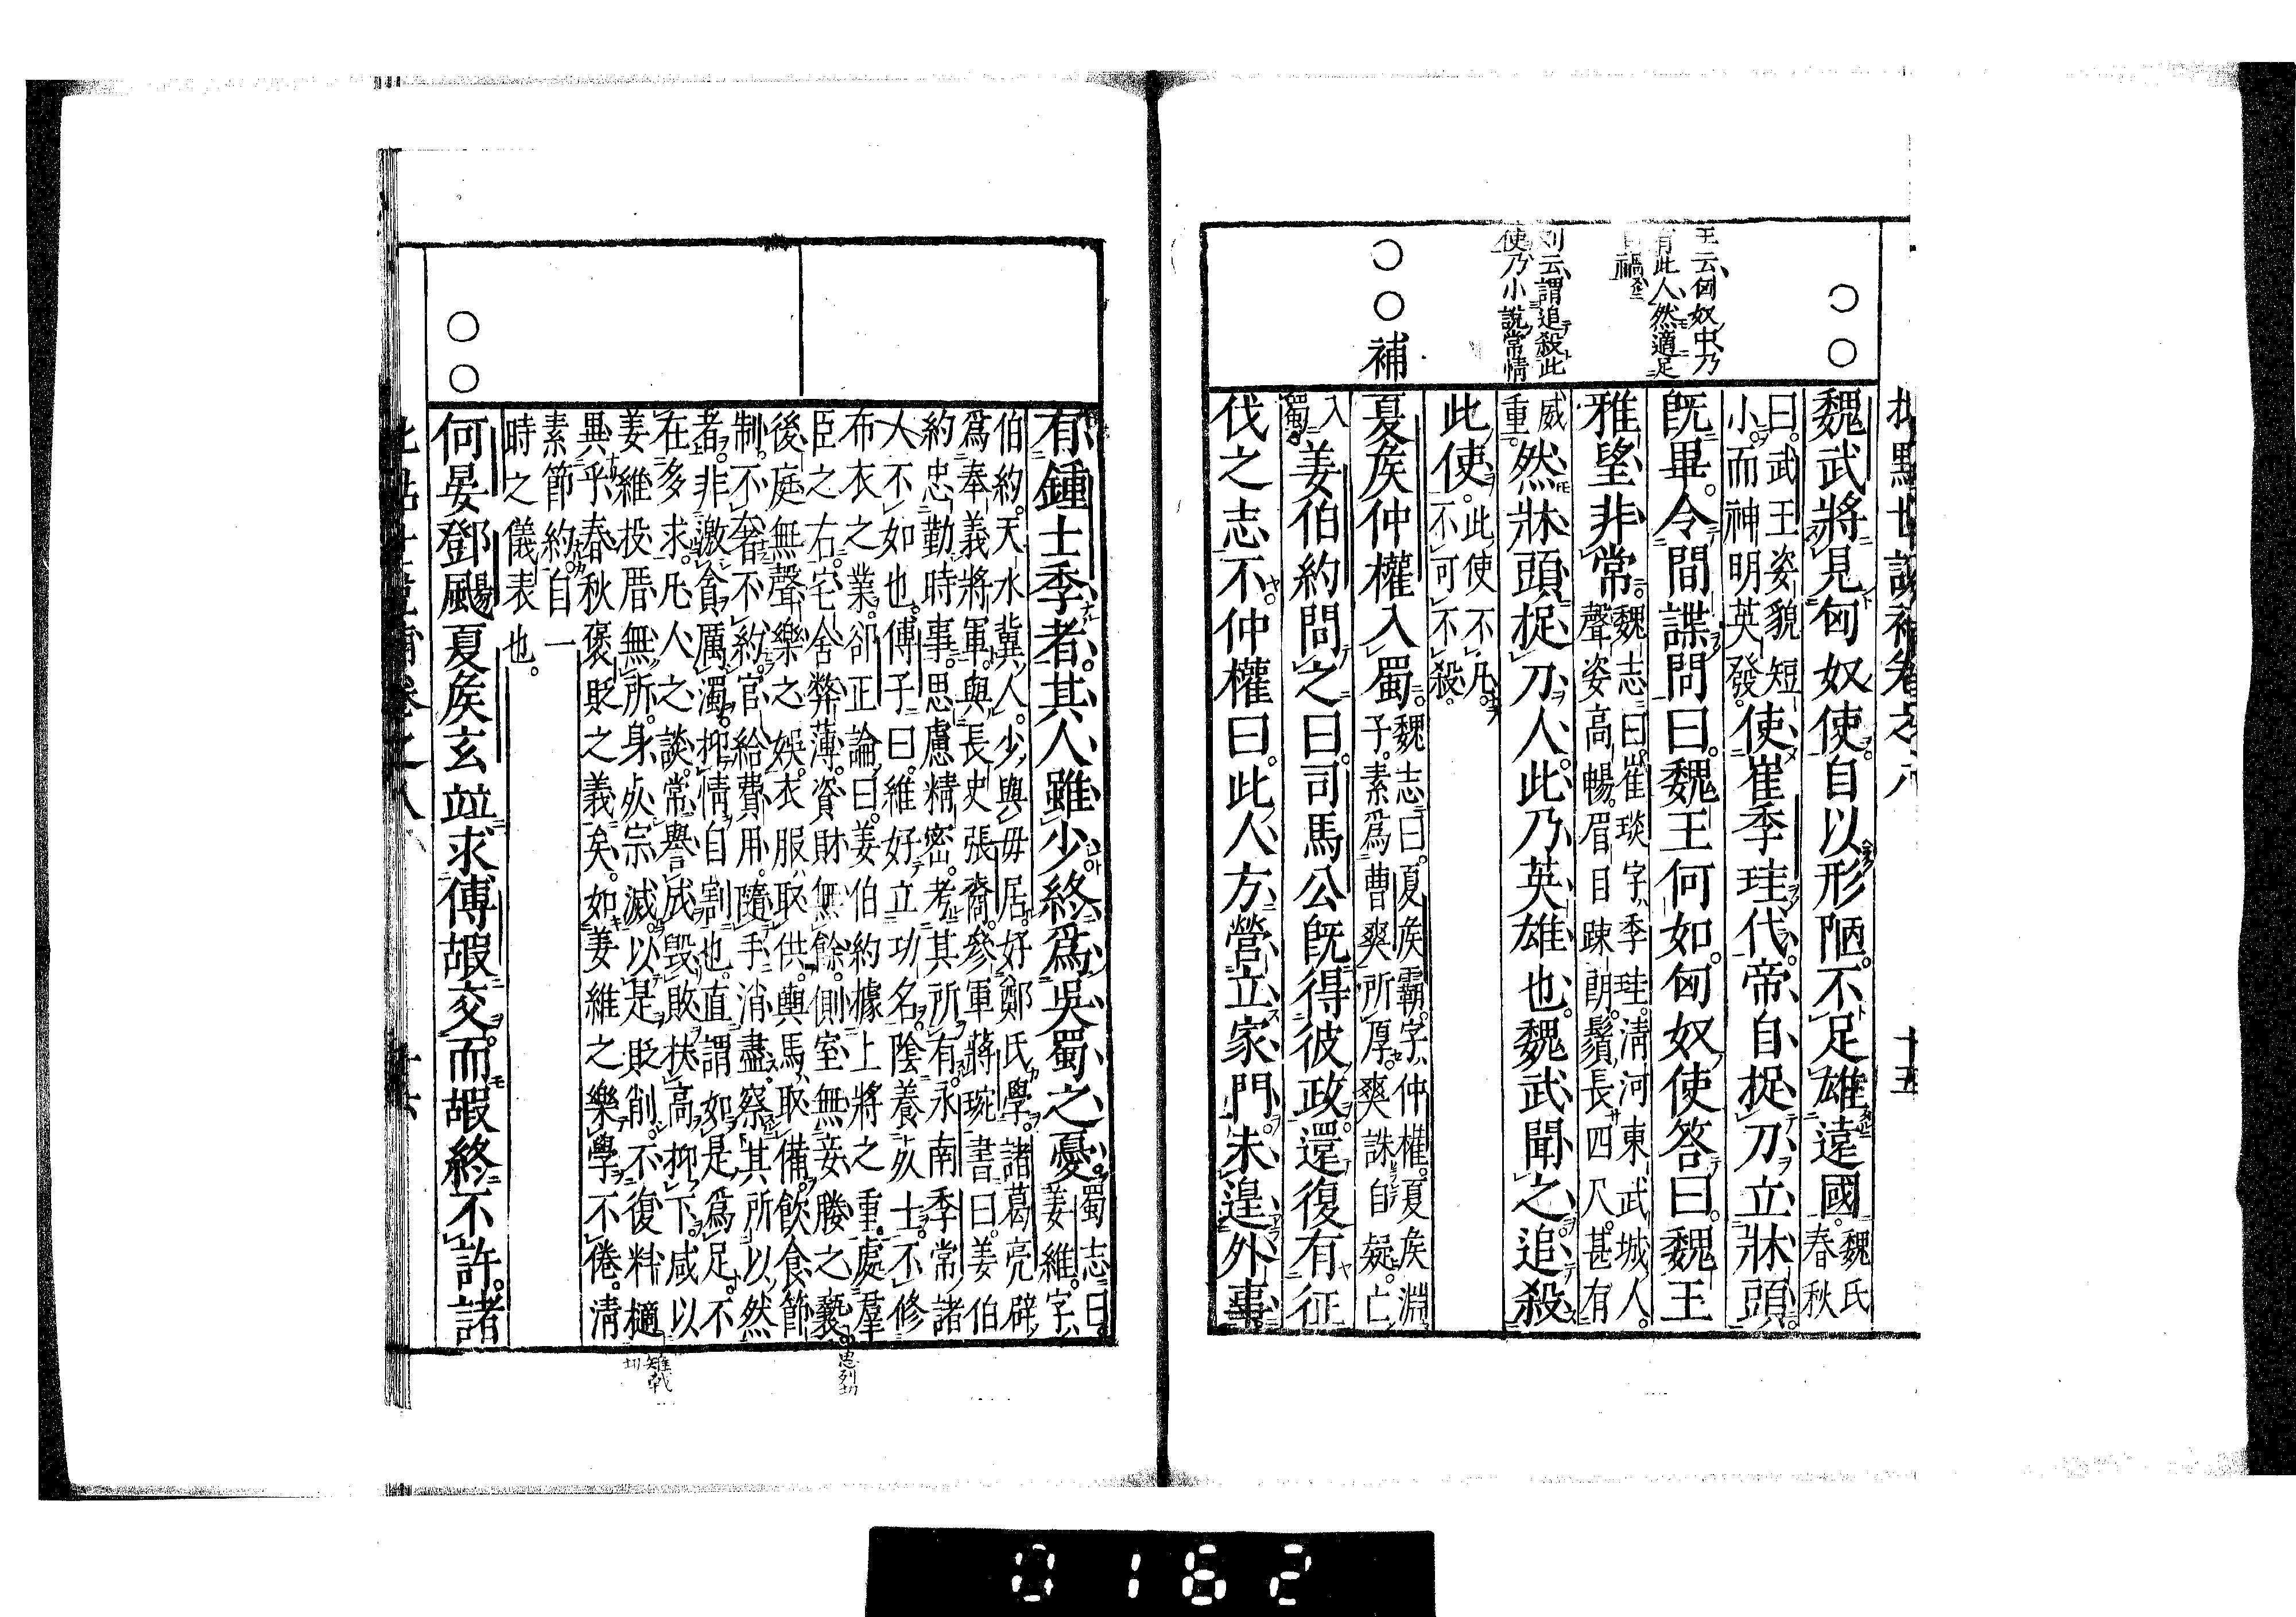 批點世說補卷之八　十五
○○
魏武將見匈奴使。自以形陋。不足雄遠國。魏氏春秋
曰。武王姿貌短小。而神明英發。使崔季珪代。帝自捉刀立牀頭。
既畢。令間諜問曰。魏王何如。匈奴使答曰。魏王
雅望非常。魏志曰。崔琰字季珪。清河東武城人。聲姿高暢。眉目疎朗。鬚長四尺。甚有
威重。然牀頭捉刀人。此乃英雄也。魏武聞之。追殺
此使。此使不凡。不可不殺。
王云、匈奴中乃
有此人、然適足
自禍
劉云、謂追殺此
使、乃小說常情
○○補
夏矦仲權入蜀。魏志曰。夏矦霸。字仲權。夏矦淵子。素爲曹爽所厚。爽誅自疑。亡
入蜀。姜伯約問之曰。司馬公既得彼政。還復有征
伐之志不。仲權曰。此人方營立家門。未遑外事。
有鍾士季者。其人雖少。終爲吳蜀之憂。蜀志曰。姜維。字
伯約。天水冀人。少與毋居。好鄭氏學。諸葛亮辟
爲奉義將軍。與長史張裔。參軍蔣琬書曰。姜伯
約忠勤時事。思慮精密。考其所有。永南季常諸
人不如也。傅子曰。維好立功名。陰養死士。不修
布衣之業。郤正論曰。姜伯約據上將之重。處羣
臣之右。宅舍弊薄。資財無餘。側室無妾媵之褻。
後庭無聲樂之娛。衣服取供。輿馬取備。飲食節
制。不奢不約。官給費用。隨手消盡。察其所以然
者。非激貪厲濁。抑情自割也。直謂如是爲足。不
在多求。凡人之談。常譽成毀敗。扶高抑下。咸以
姜維投厝無所。身死宗滅。以是貶削。不復料擿
異乎春秋褒貶之義矣。如姜維之樂學不倦。清
素節約。自一
時之儀表也。
思列切
雉戟
切
○○
何晏鄧颺夏矦玄竝求傅嘏交。而嘏終不許。諸
卷之八